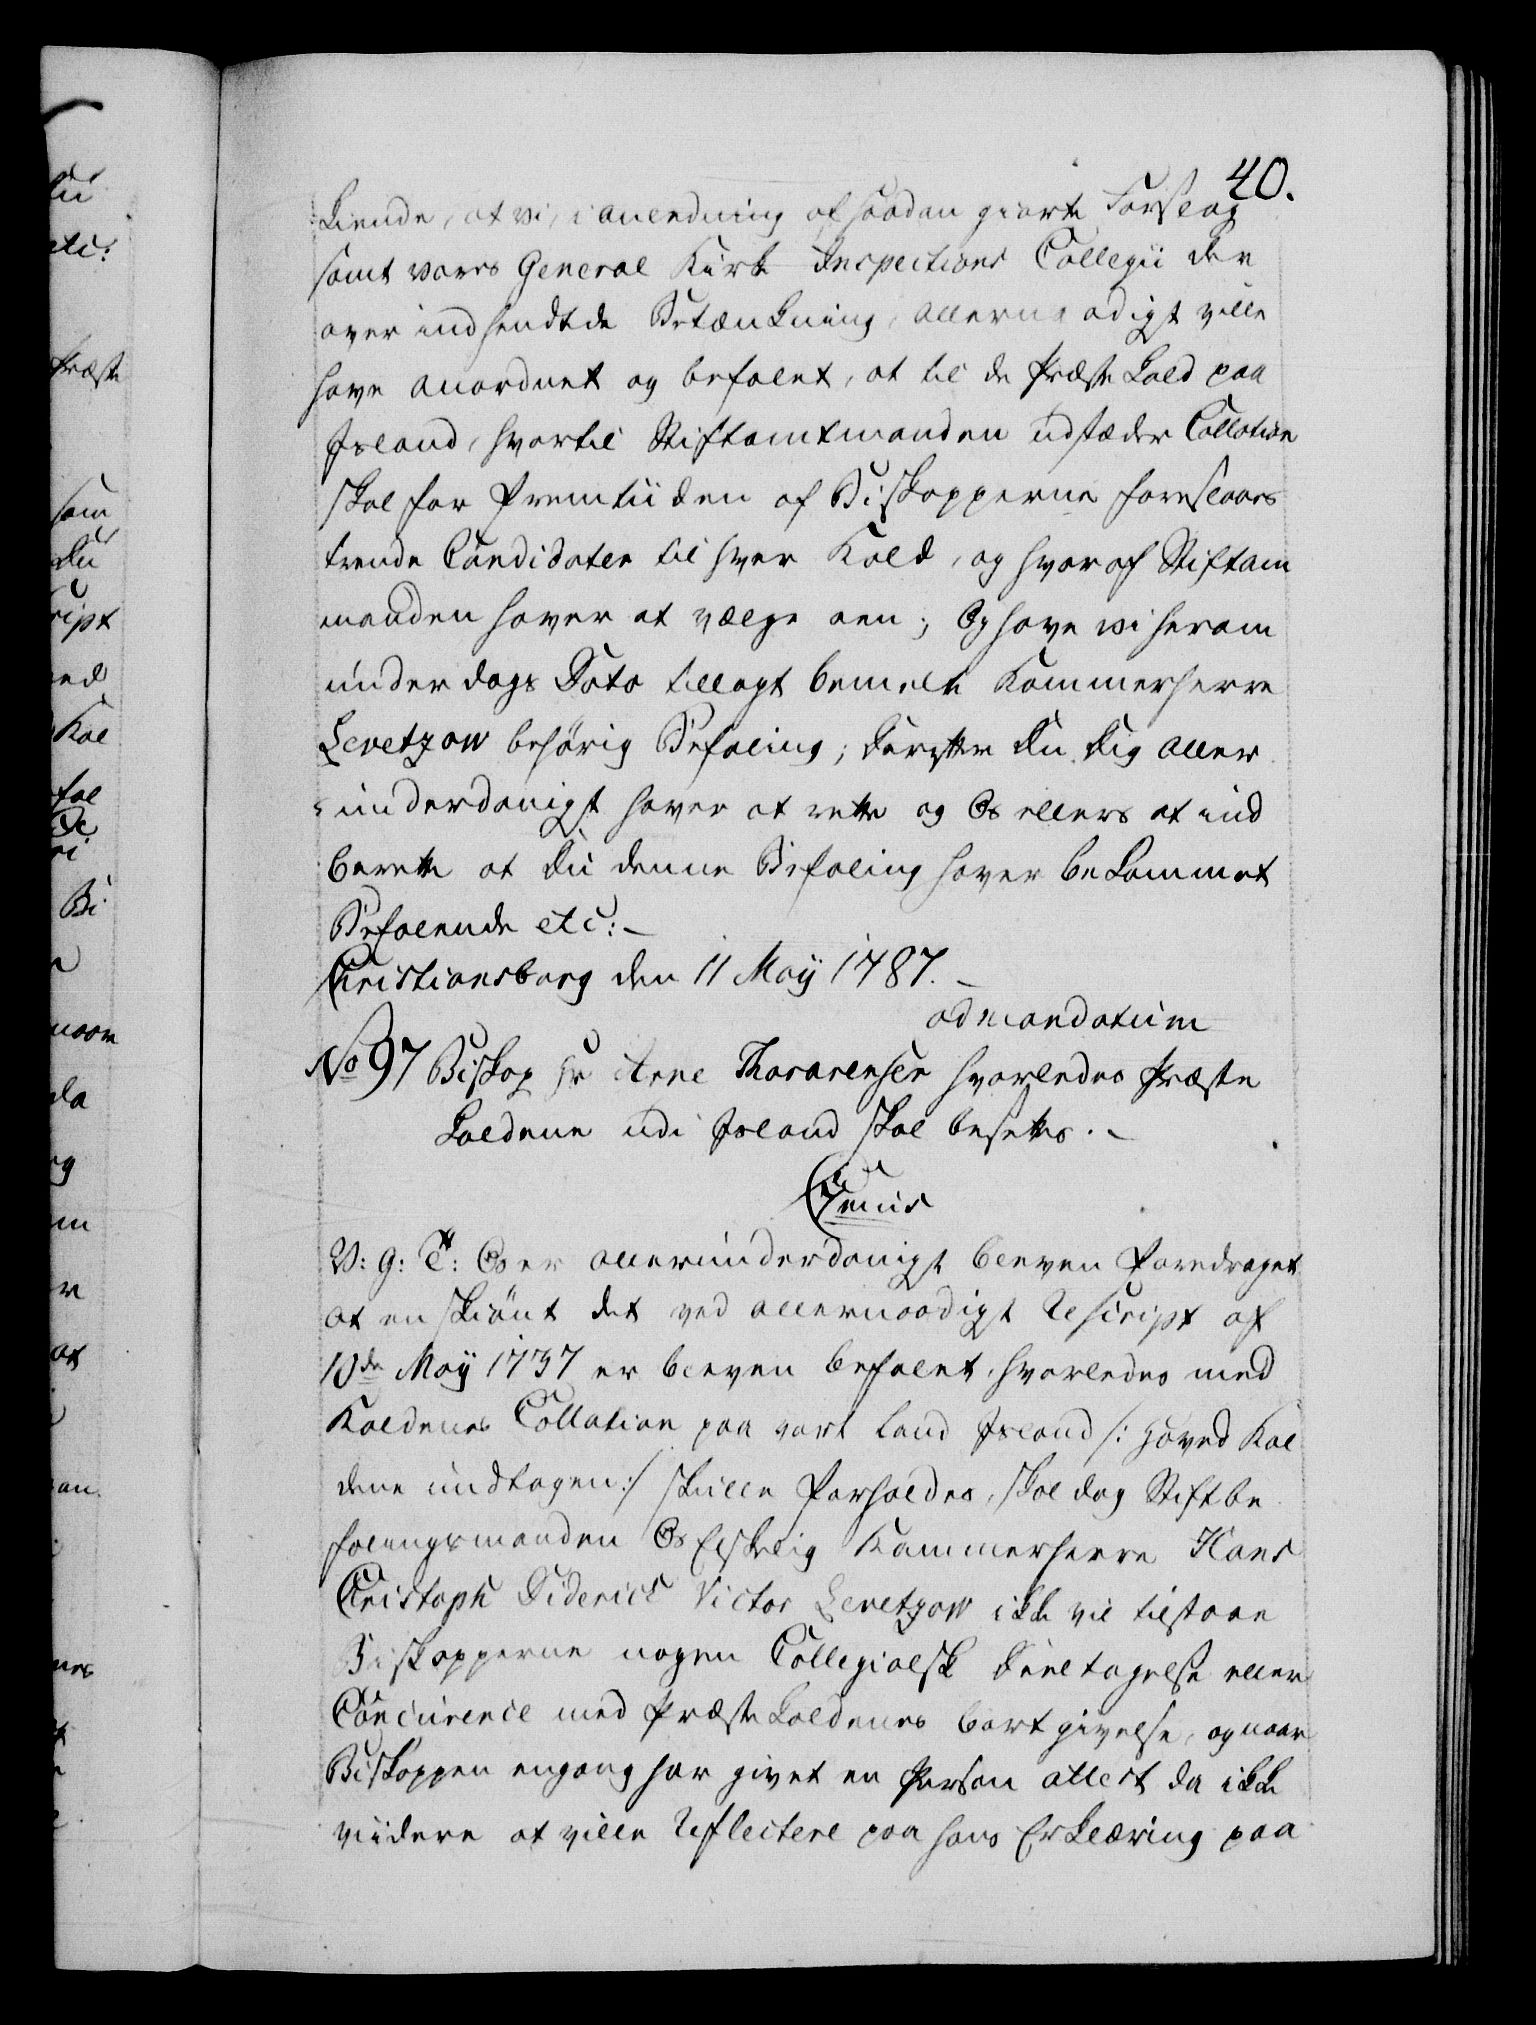 40.
kiende, at vi, i anledning af saadan giorte Forslag
samt vores General Kirke Inspections Collegii der
over indsendte Betænkning, allernaadigst ville
have anordnet og befalet, at til de Præste Kald paa
Island, hvortil Stiftamtmanden udstæder Collation
skal for Fremtiiden af Biskopperne foreslaaes
trende Candidater til hver Kald, og hvoraf Stiftam
manden haver at vælge een; Og have vi herom
under dags Dato tillagt bemelte Kammerherre
Levetzow behørig Befaling; Derefter Du Dig aller
underdanigst haver at rette og Os ellers at ind
berette at Du denne Befaling haver bekommet
Befalende etc: -
Christiansborg den 11 May 1787. -
ad mandatum
No 97 Biskop Hr Arne Thorarensen hvorledes Præste
Kaldene udi Island skal besettes. -
C 7mus
V: G: T: Os er allerunderdanigst bleven Foredraget
at enskiönt det ved allernaadigst Rescript af
10de May 1737 er bleven befalet, hvorledes med
Kaldenes Collation paa vort Land Island /: Hoved Kal
dene undtagen :/ skulle Forholdes, skal dog Stiftbe
falingsmanden Os Elskelig Kammerherre Hans
Christoph Diderich Victor Levetzow ikke vil tilstaae
Biskopperne nogen Collegialsk Deeltagelse eller
Concurence med Præste Kaldenes bortgivelse, og naar
Biskoppen engang har givet en Person attest da ikke
viidere at ville Reflectere paa hans Erklæring paa